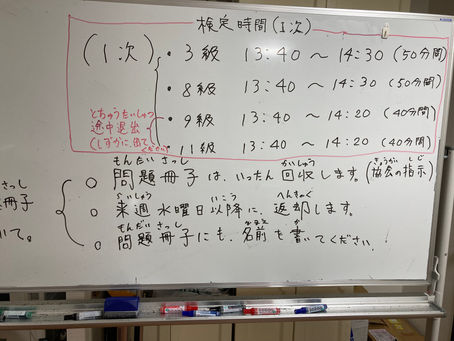 検定時間(1次)
(1次)
・3級 13:40 ～ 14:30 (50分間)
・8級 13:40 ～ 14:30 (50分間)
・9級 13:40 ～ 14:20 (40分間)
・11級 13:40 ～ 14:20 (40分間)
とちゅうたいしゅつ
途中退出
(しずかに、出て
ください)
もんだい さっし かいしゅう きょうかい しじ
○ 問題冊子は、いったん回収します。(協会の指示)
さっし
冊子
らいしゅう いこう へんきゃく
○ 来週水曜日以降に、返却します。
もんだい さっし なまえ か
○ 問題冊子にも、名前を書いてください!
いて。